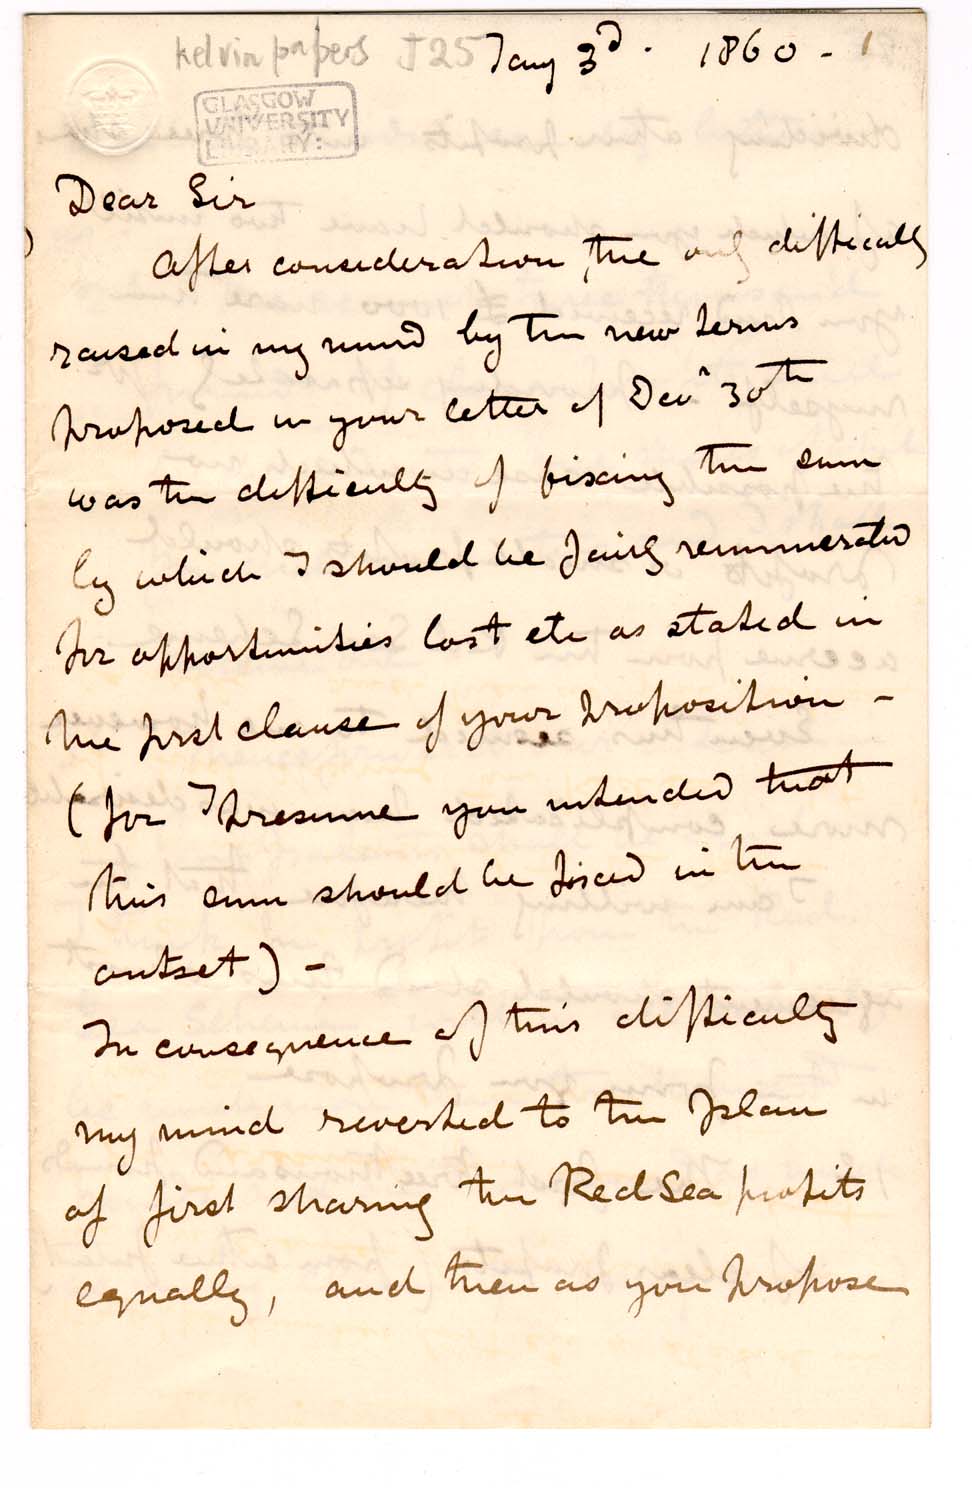 Kelvin papers J25
Jany 3d. 1860 -
1
GLASGOW
UNIVERSITY
LIBRARY:
Dear Sir
After consideration, the only difficulty
raised in my mind by the new terms
proposed in your letter of Decr 30th
was the difficulty of fixing the sum
by which I should be fairly remunerated
for opportunities lost etc as stated in
the first clause of your proposition -
(for I presume you intended that
this sum should be fixed in the
outset) -
In consequence of this difficulty
my mind reverted to the plan
of first sharing the Red Sea profits
equally, and then as you propose